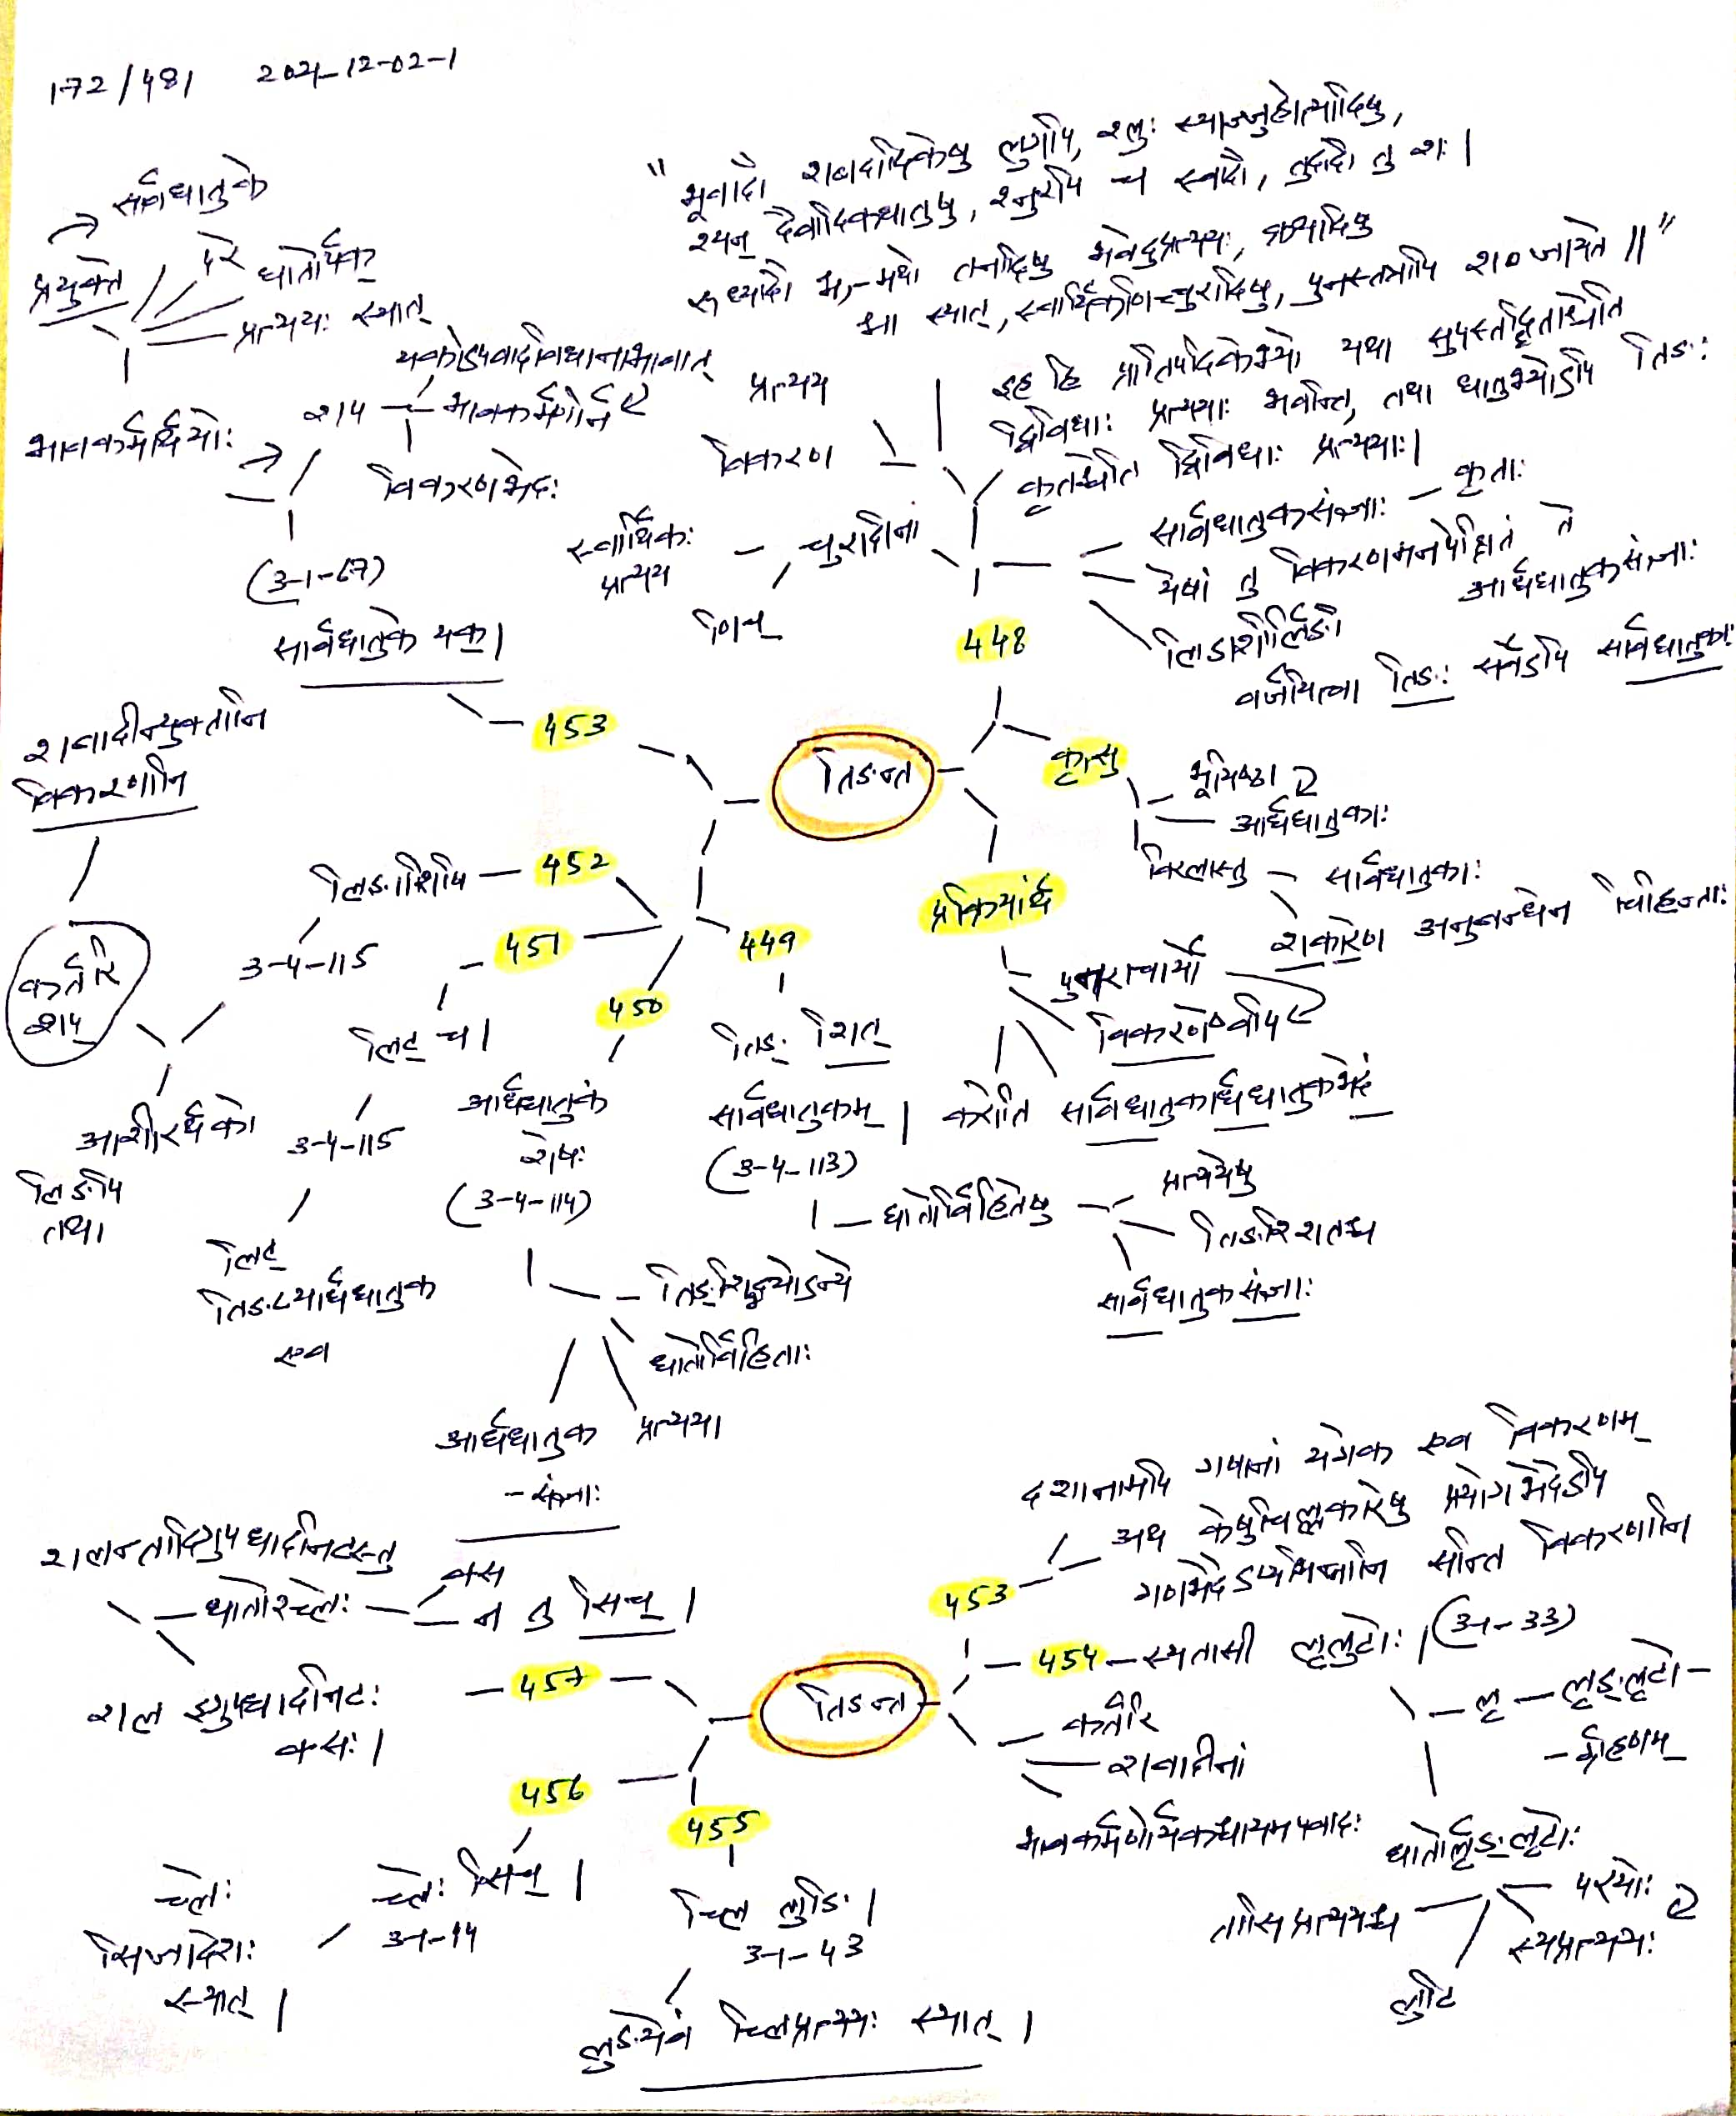 172/481 2021-12-02-1
"भूवादौ शबदादिकेषु लुगपि, श्लुः स्याज्जुहोत्यादिषु,
श्यन् दैवादिकधातुषु, श्नुरपि च स्वादौ, तुदादौ तु शः।
रुध्यादौ श्न,-मथो तनादिषु भवेदुप्रत्ययः, क्र्यादिषु
श्ना स्यात्, स्वार्थिकणिच्चुरादिषु, पुनस्तत्रापि शब् जायते॥"
सार्वधातुके
प्रयुक्ते
परे
धातोर्यक्
प्रत्ययः स्यात्
भावकर्मार्थयोः
यकोऽपवादविधानाभावात्
शप्
भावकर्मणोर्न
विकरणभेदः
(3-1-67)
सार्वधातुके यक्।
प्रत्यय
विकरण
इह हि प्रातिपदिकेभ्यो यथा सुपस्तद्धिताश्चेति
द्विविधाः प्रत्ययाः भवन्ति, तथा धातुभ्योऽपि तिङः
कृतश्चेति द्विविधाः प्रत्ययाः।
स्वार्थिकः
प्रत्यय
चुरादीनां
णिच्
सार्वधातुकसंज्ञाः
कृताः
येषां तु विकरणमनपेक्षितं ते
आर्धधातुकसंज्ञाः
लिडाशीर्लिङौ
वर्जयित्वा तिङः सर्वेऽपि सार्वधातुकाः
448
453
तिङन्त
कृत्सु
भूयिष्ठा
आर्धधातुकाः
विरलास्तु
सार्वधातुकाः
शकारेण अनुबन्धेन चिह्निताः
शबादीन्युक्तानि
विकरणानि
कर्तरि
शप्
प्रक्रियार्थं
पुनराचार्यो
विकरणेष्वपि
करोति सार्वधातुकार्धधातुकभेदं
452
लिङाशिषि
3-4-115
आशीरर्थको
लिङपि
तथा
451
लिट् च।
3-4-115
लिट्
तिङप्यार्धधातुक
एव
450
आर्धधातुकं
शेषः
(3-4-114)
449
तिङ् शित्
सार्वधातुकम्।
(3-4-113)
धातोर्विहितेषु
प्रत्ययेषु
तिङश्शितश्च
सार्वधातुकसंज्ञाः
तिङ्शिद्भ्योऽन्ये
धातोर्विहिताः
प्रत्यया
आर्धधातुक
-संज्ञाः
दशानामपि गणानां यगेक एव विकरणम्
अथ केषुचिल्लकारेषु प्रयोगभेदेऽपि
गणभेदेऽप्यभिन्नानि सन्ति विकरणानि
453
454
स्यतासी लृलुटोः।
(3-1-33)
लृ
लृङ्लृटो-
-र्ग्रहणम्
तिङन्त
कर्तरि
शबादीनां
भावकर्मणोर्यकश्चायमपवादः
धातोर्लृङ्लृटोः
परयोः
स्यप्रत्ययः
तासिप्रत्ययश्च
लुटि
शलन्तादिगुपधादनिटस्तु
धातोश्च्लेः
क्स
न तु सिच्।
457
शल इगुपधादनिटः
क्सः।
456
च्लेः सिच्।
3-1-44
च्लेः
सिजादेशः
स्यात्।
455
च्लि लुङि।
3-1-43
लुङ्येवं च्लिप्रत्ययः स्यात्।